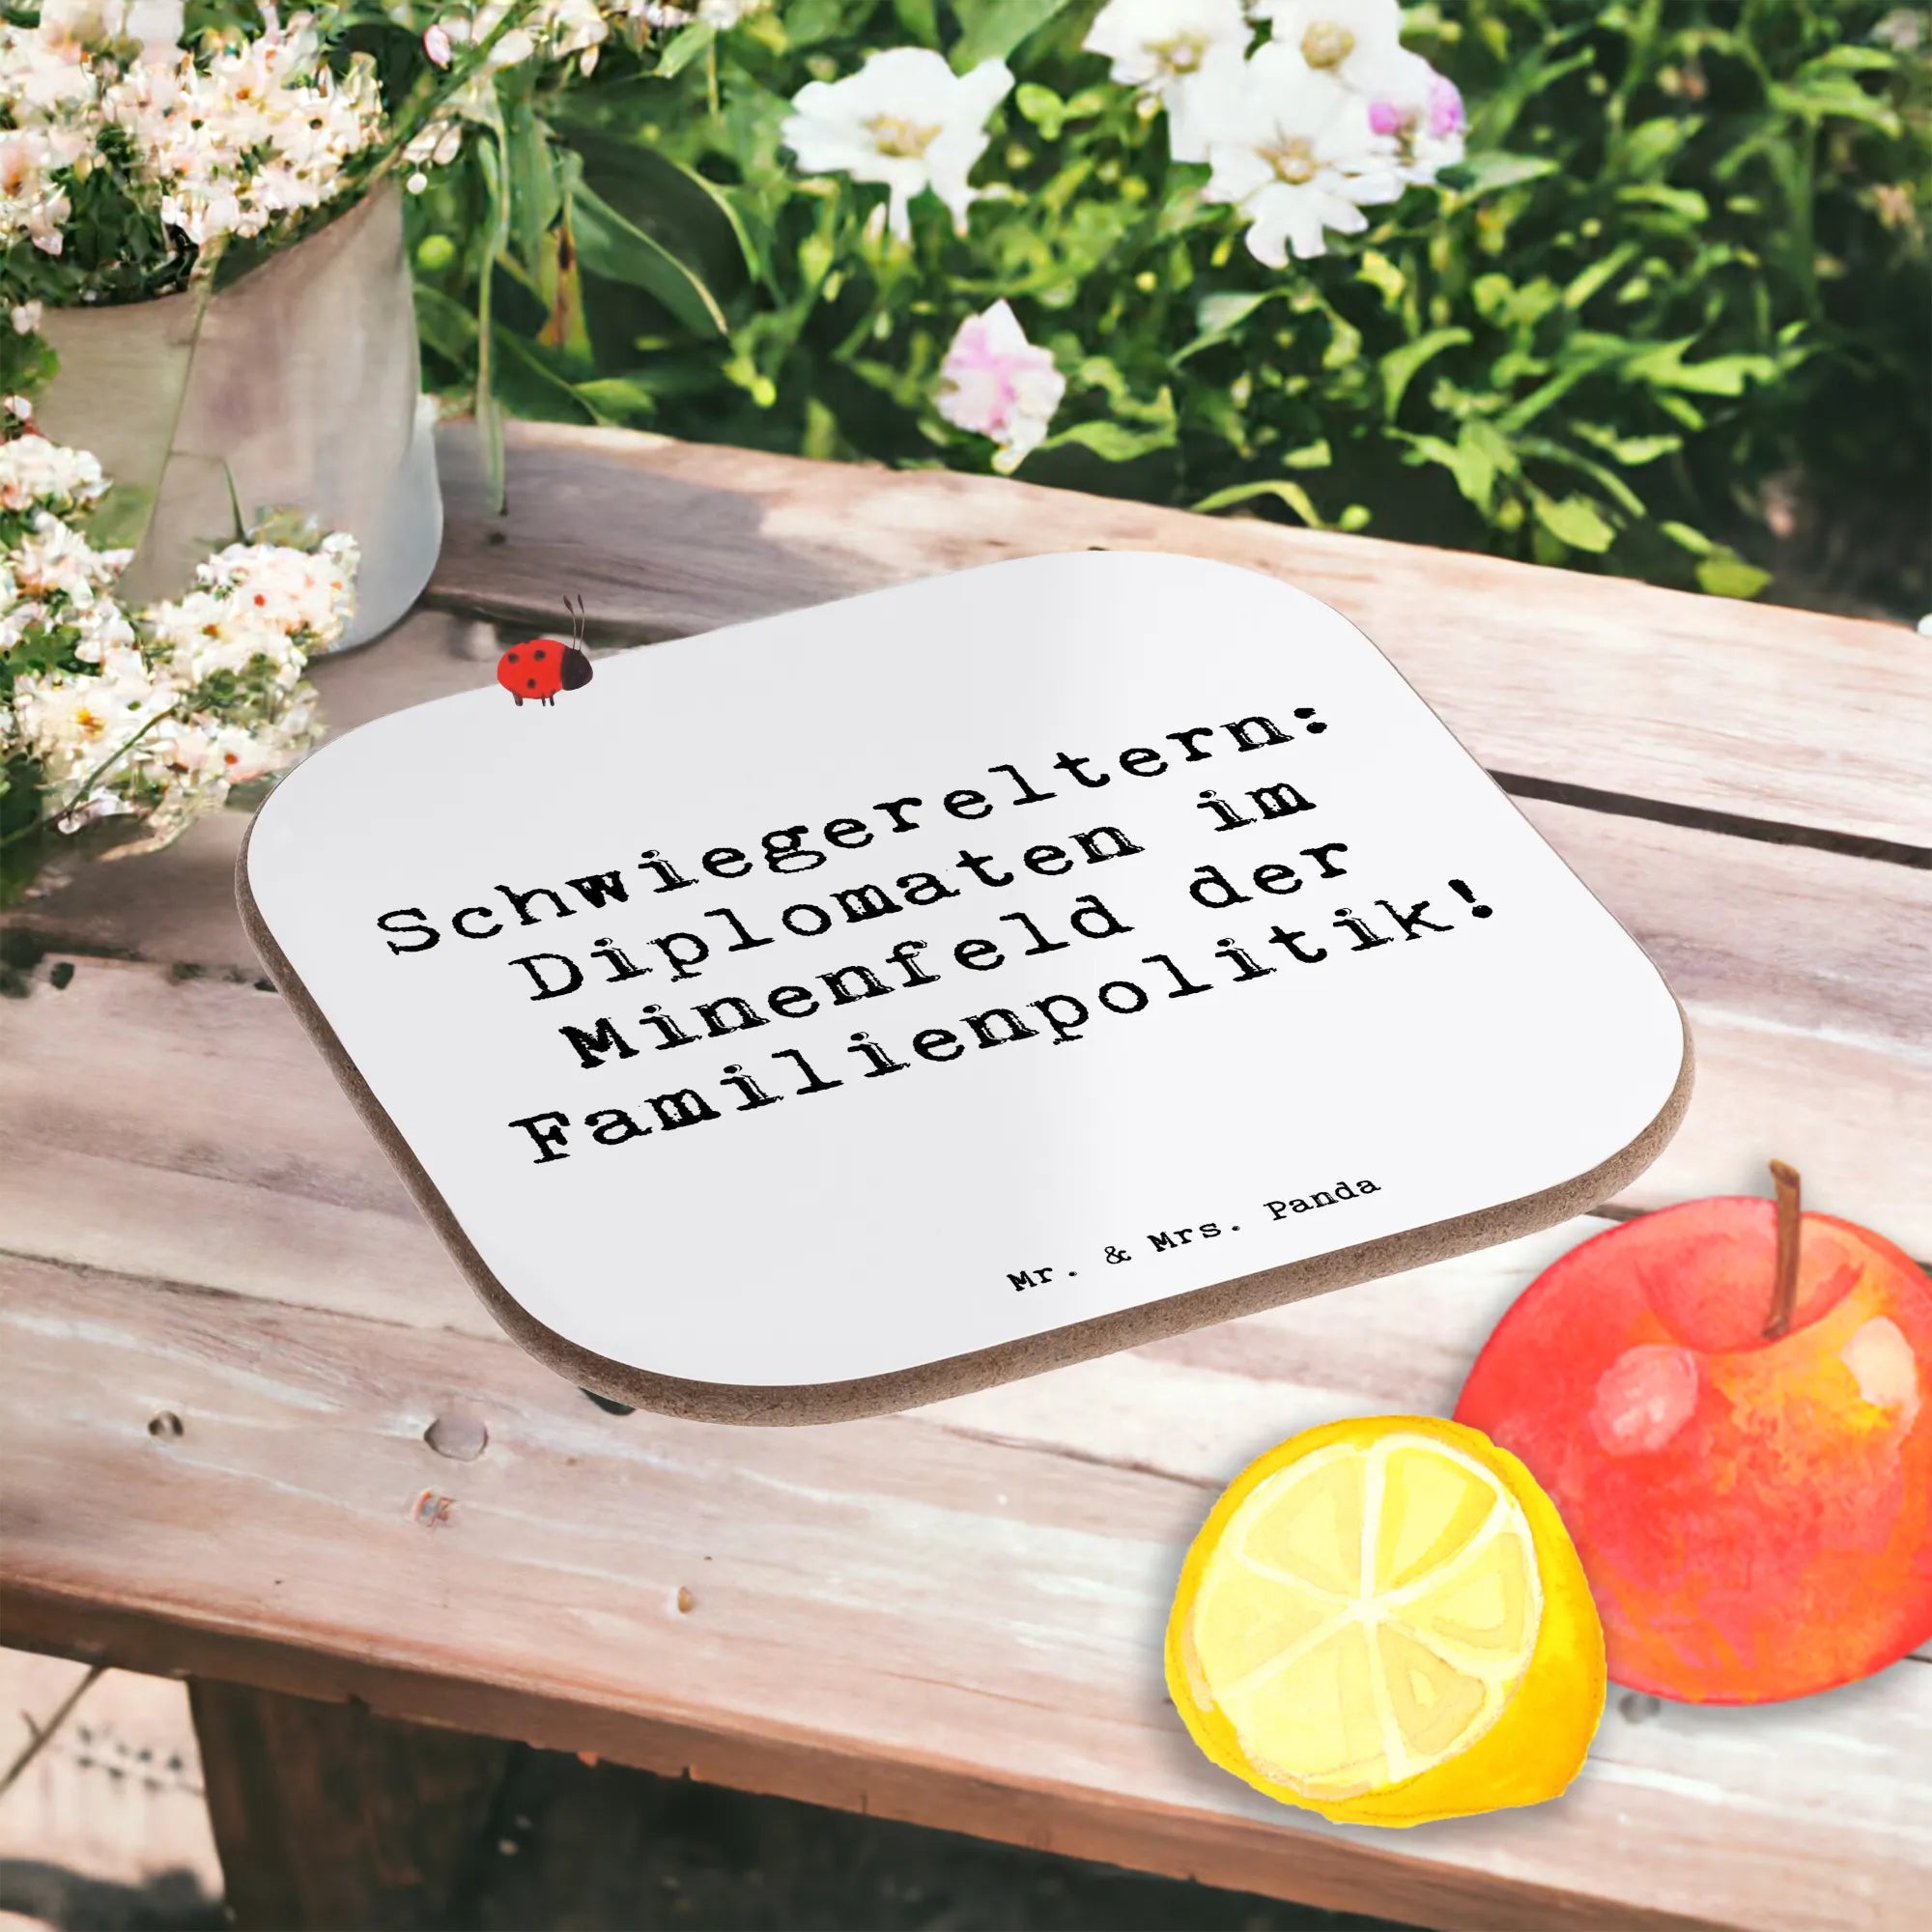 Schwiegereltern:
Diplomaten im
Minenfeld der
Familienpolitik!
Mr. & Mrs. Panda